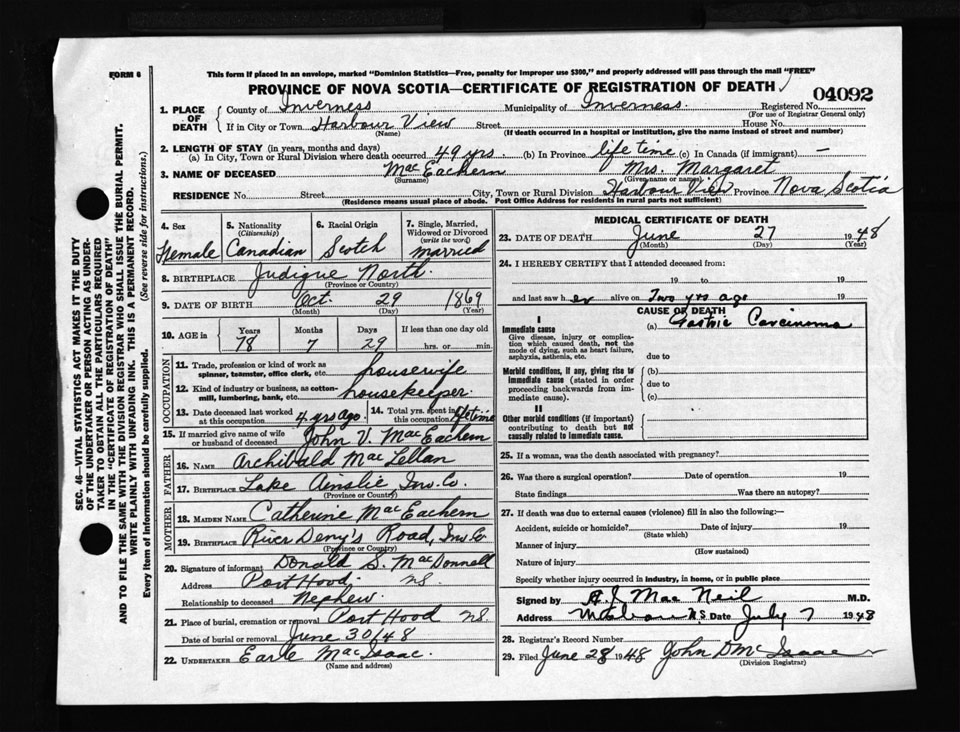 FORM 6
This form if placed in an envelope, marked "Dominion Statistics—Free, penalty for improper use $300," and properly addressed will pass through the mail "FREE"
PROVINCE OF NOVA SCOTIA—CERTIFICATE OF REGISTRATION OF DEATH
04092
1. PLACE OF DEATH
County of Inverness Municipality of Inverness. Registered No.
(For use of Registrar General only)
If in City or Town Harbour View Street House No.
(Name) (If death occurred in a hospital or institution, give the name instead of street and number)
2. LENGTH OF STAY (in years, months and days)
(a) In City, Town or Rural Division where death occurred 49 yrs. (b) In Province life time (c) In Canada (if immigrant) —
3. NAME OF DECEASED MacEachern Mrs. Margaret
(Surname) (Given name or names)
RESIDENCE No. Street City, Town or Rural Division Harbour View Province Nova Scotia
(Residence means usual place of abode. Post Office Address for residents in rural parts not sufficient)
4. Sex Female
5. Nationality (Citizenship) Canadian
6. Racial Origin Scotch
7. Single, Married, Widowed or Divorced (write the word) Married
8. BIRTHPLACE Judique North.
(Province or Country)
9. DATE OF BIRTH Oct. 29 1869
(Month) (Day) (Year)
10. AGE in Years Months Days If less than one day old
78 7 29 hrs. or min.
OCCUPATION
11. Trade, profession or kind of work as spinner, teamster, office clerk, etc. housewife
12. Kind of industry or business, as cotton-mill, lumbering, bank, etc. housekeeper.
13. Date deceased last worked at this occupation 4 yrs ago.
14. Total yrs. spent in this occupation lifetime
15. If married give name of wife or husband of deceased John V. MacEachern
FATHER
16. NAME Archibald MacLellan
17. BIRTHPLACE Lake Ainslie Inv. Co.
(Province or Country)
MOTHER
18. MAIDEN NAME Catherine MacEachern
19. BIRTHPLACE River Deny's Road, Inv Co
(Province or Country)
20. Signature of informant Donald S. MacDonnell
Address Port Hood. NS.
Relationship to deceased Nephew.
21. Place of burial, cremation or removal Port Hood NS.
Date of burial or removal June 30/48
22. UNDERTAKER Earle MacIsaac.
(Name and address)
MEDICAL CERTIFICATE OF DEATH
23. DATE OF DEATH June 27 1948
(Month) (Day) (Year)
24. I HEREBY CERTIFY that I attended deceased from:
19 to 19
and last saw her alive on Two yrs ago 19
CAUSE OF DEATH
I
Immediate cause (a) Gastric Carcinoma
Give disease, injury or complication which caused death, not the mode of dying, such as heart failure, asphyxia, asthenia, etc.
due to
Morbid conditions, if any, giving rise to immediate cause (stated in order proceeding backwards from immediate cause).
(b)
due to
(c)
II
Other morbid conditions (if important) contributing to death but not causally related to immediate cause.
25. If a woman, was the death associated with pregnancy?
26. Was there a surgical operation? Date of operation 19
State findings Was there an autopsy?
27. If death was due to external causes (violence) fill in also the following:—
Accident, suicide or homicide? Date of injury 19
(State which)
Manner of injury
(How sustained)
Nature of injury
Specify whether injury occurred in industry, in home, or in public place
Signed by MacNeil M.D.
Address N.S Date July 7 1948
28. Registrar's Record Number
29. Filed June 28 1948 John D McIsaac
(Division Registrar)
SEC. 46—VITAL STATISTICS ACT MAKES IT THE DUTY
OF THE UNDERTAKER OR PERSON ACTING AS UNDER-
TAKER TO OBTAIN ALL THE PARTICULARS REQUIRED
IN THE "CERTIFICATE OF REGISTRATION OF DEATH"
AND TO FILE THE SAME WITH THE DIVISION REGISTRAR WHO SHALL ISSUE THE BURIAL PERMIT.
WRITE PLAINLY WITH UNFADING INK. THIS IS A PERMANENT RECORD.
Every item of information should be carefully supplied. (See reverse side for instructions.)